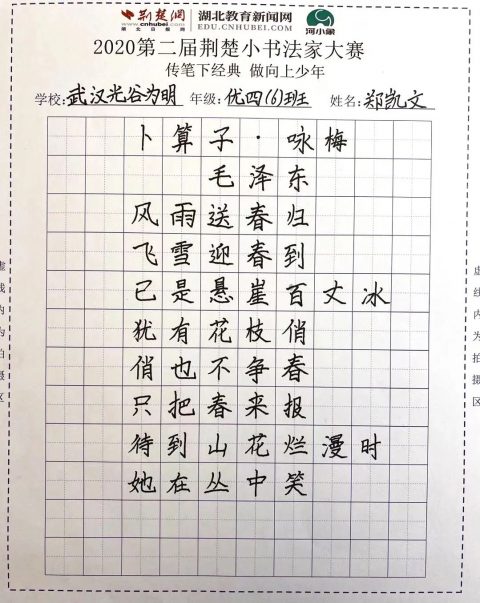 荆楚网 湖北教育新闻网
www.cnhubei.com EDU.CNHUBEI.COM 河小象
湖北日报网
2020第二届荆楚小书法家大赛
传笔下经典 做向上少年
学校:武汉光谷为明 年级:优四(6)班 姓名:郑凯文
卜算子·咏梅
毛泽东
风雨送春归
飞雪迎春到
已是悬崖百丈冰
犹有花枝俏
俏也不争春
只把春来报
待到山花烂漫时
她在丛中笑
虚线内为拍摄区
虚线内为拍摄区